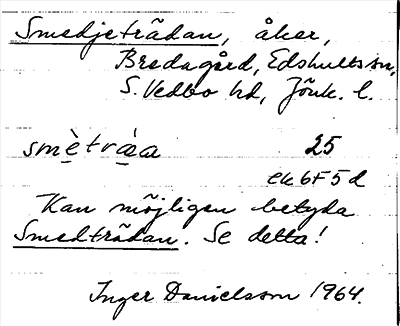 Smedjeträdan, åker,
Bredagård, Edshults sn,
S. Vedbo hd, Jönk. l.
smètràa 25
ek 6F5d
Kan möjligen betyda
Smedträdan. Se detta!
Inger Danielsson 1964.